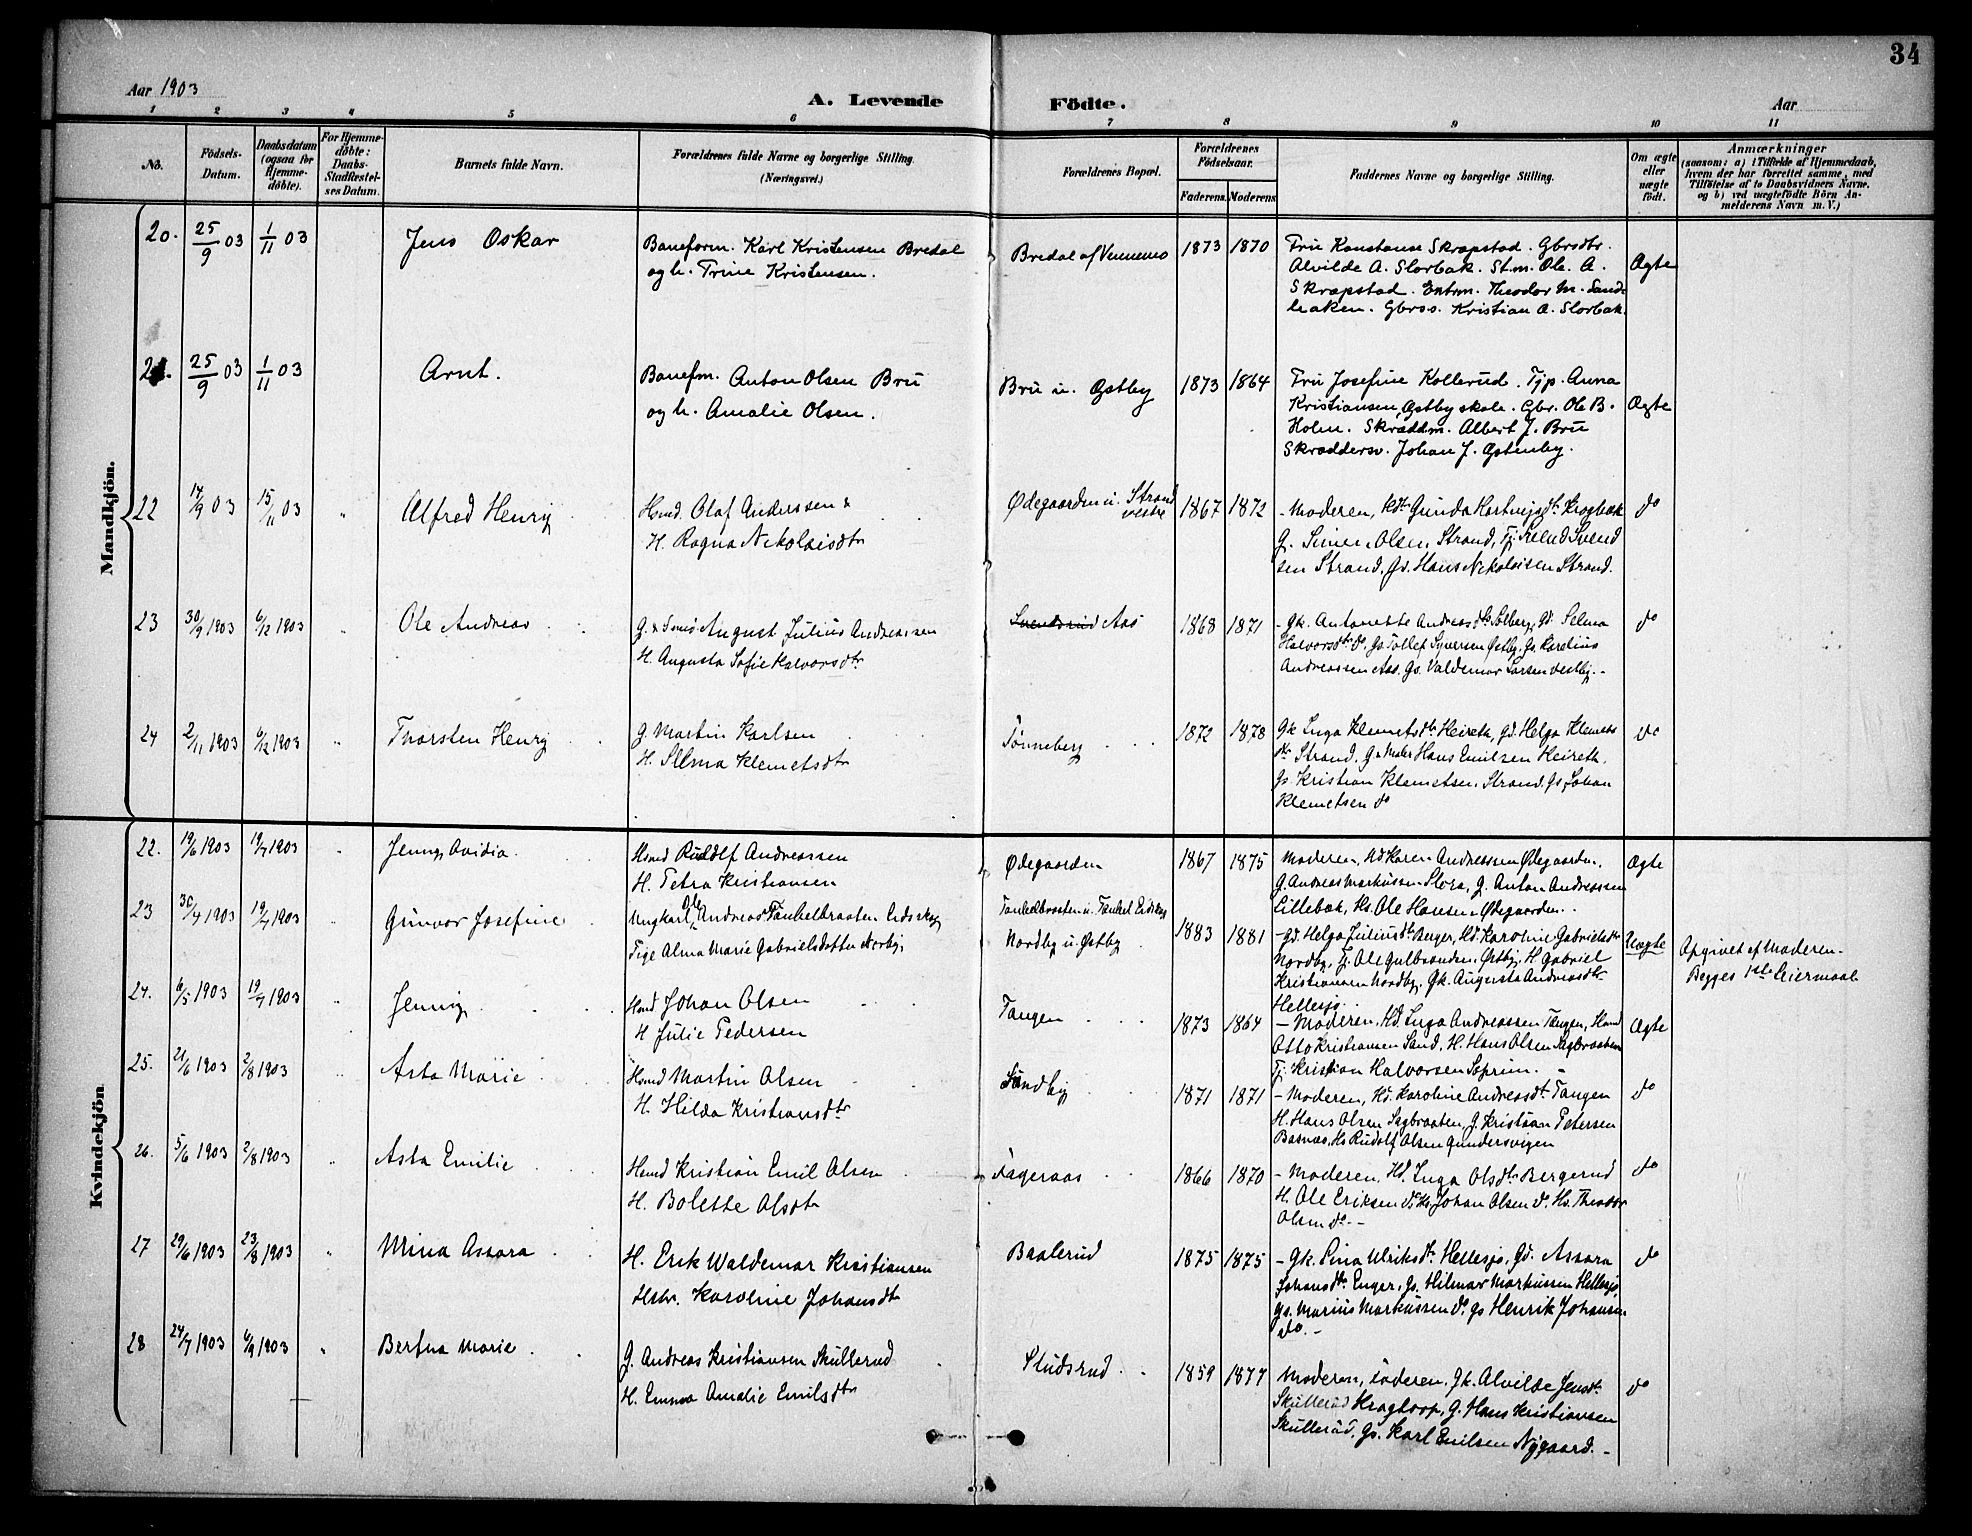 34
Aar 1903
A. Levende Födte.
Aar
1 2 3 4 5 6 7 8 9 10 11
No.
Födsels-Datum.
Daabsdatum (ogsaa for Hjemmedöbte).
For Hjemmedöbte: Daabs-Stadfæstelses Datum.
Barnets fulde Navn.
Forældrenes fulde Navne og borgerlige Stilling. (Næringsvei.)
Forældrenes Bopæl.
Forældrenes Födselsaar.
Faderens. Moderens
Faddernes Navne og borgerlige Stilling.
Om ægte eller uægte födt.
Anmærkninger
(saasom: a) i Tilfælde af Hjemmedaab,
hvem der har forrettet samme, med
Tilföielse af to Daabsvidners Navne.
og b) ved uægtefödte Börn An-
melderens Navn m. V.)
Mandkjön.
20. 25/9 03 1/11 03 Jens Oskar
Baneform. Karl Kristensen Bredal
og h. Trine Kristensen.
Bredal af Vennemo 1873 1870
Fru Konstanse Skrapstad. Gbrsdtr.
Alvilde A. Slorbak. St.m. Ole. A.
Skrapstad. Extrm. Theodor M. Sand-
baken. Gbrss. Kristian A. Slorbak.
Ægte
21. 25/9 03 1/11 03 Arnt.
Banefm. Anton Olsen Bru
og h. Amalie Olsen.
Bru u. Østby 1873 1864
Fru Josefine Kollerud. Tjp. Anna
Kristiansen, Østby skole. Gbr. Ole B.
Holm. Skræddm. Albert J. Bru
Skræddersv. Johan J. Østenby.
Ægte
22 14/9 03 15/11 03 " Alfred Henry
Hsmd. Olaf Anderssen &
H. Ragna Nikolaisdtr
Ødegaarden u. Strand vestre 1867 1872
- Moderen, Gunda Hartvigsdtr Krogbæk
G. Simen Olsen, Strand, Tj. Svend
sen Strand, Gs. Hans Nikolaisen Strand.
do
23 30/9 1903 6/12 1903 " Ole Andreas
G. & August Julius Andreassen
H. Augusta Sofie Halvorsdtr
Aas 1868 1871
- Gk. Antonette Andreasdtr Solberg, Gd. Selma
Halvorsdtr do, Gs Tollef Syversen Østby, Gs Karelius
Andreassen Aas, Gs. Valdemar Larsen Vestby. -
do
24 2/11 1903 6/12 1903 " Thorsten Henry
G. Martin Karlsen
H. Selma Klemetsdtr
Tønneberg 1872 1878
Gk Inga Klemetsdtr Heireth, Gd. Helga Klemets
dtr Strand, G & Maler Hans Emilsen Heireth,
Gs. Kristian Klemetsen, Strand, Gs Johan
Klemetsen do
do
Kvindekjön
22. 19/6 1903 19/7 1903 " Jenny Ovidia.
Hsmd Rudolf Andreassen
H. Petra Kristiansen
Ødegaarden 1867 1875
Moderen, Hd Karen Andreassen Ødegaarden,
G. Andreas Markussen Slora, G. Anton Andreassen
Lillebæk, Hs. Ole Hansen Ødegaarden.
Ægte
23 30/4 1903 19/7 1903 Gunvor Josefine
Ungkarl Ole Andreas Tankelbraaten Eidskog
Pige Alma Marie Gabrielsdatter Norby,
Tankelbraaten u. Tankel Eidskog
Nordby u. Østby 1883 1881
- Gd. Helga Juliusdtr Berger, Hd. Karoline Gabrielsdtr
Nordby, Tj. Ole Gulbranden, Østby, H Gabriel
Kristiansen Nordby, Gk. Augusta Andreasdtr
Hellesjø.
Uægte
Opgivet af Moderen-
Begges 1ste Leiermaal
24. 6/5 1903 19/7 1903 " Jenny.
Hsmd Johan Olsen
H Julie Pedersen
Tangen 1873 1864
- Moderen, Hd. Inga Andreassen Tangen, Hsmd
Otto Kristiansen Sand, H. Hans Olsen Sagbraaten
Tj. Kristian Halvorsen Soprim. -
Ægte
25. 21/6 1903 2/8 1903 " Asta Marie
Hsmd Martin Olsen
H. Hilda Kristiansdtr
Sandby 1871 1871
- Moderen, Hd. Karoline Andreasdtr Tangen
H. Hans Olsen Sagbraaten, G. Kristian Petersen
Basnæs, Hs Rudolf Olsen Gundersvigen
do
26. 5/6 1903 2/8 1903 " Asta Emilie
Hsmd Kristian Emil Olsen
H. Bolette Olsdtr
Fageraas 1866 1870
- Moderen, Hd. Inga Olsdtr Bergerud
H. Ole Eriksen do, Hs Johan Olsen do, Hs. Theodor
Olsen do -
do
27 29/6 1903 23/8 1903 " Mina Assora
H. Erik Waldemar Kristiansen
Hstr. Karoline Johansdtr
Baalerud 1875 1875
- Gk. Lina Ulriksdtr Hellesjø, Gd. Assora
Johansdtr Enger, Gs. Hilmar Markussen Hellesjø,
Gs. Marius Markussen do, Gs Henrik Johansen
do. -
do
28 24/7 1903 6/9 1903 " Bertha Marie
G. Andreas Kristiansen Skullerud
H. Emma Amalie Emilsdtr
Sludsrud 1859 1877
Moderen, Faderen, Gk. Alvilde Jensdtr
Skullerud Kragtorp, G. Hans Kristiansen
Skullerud, Gs. Karl Emilsen Nygaard. -
do